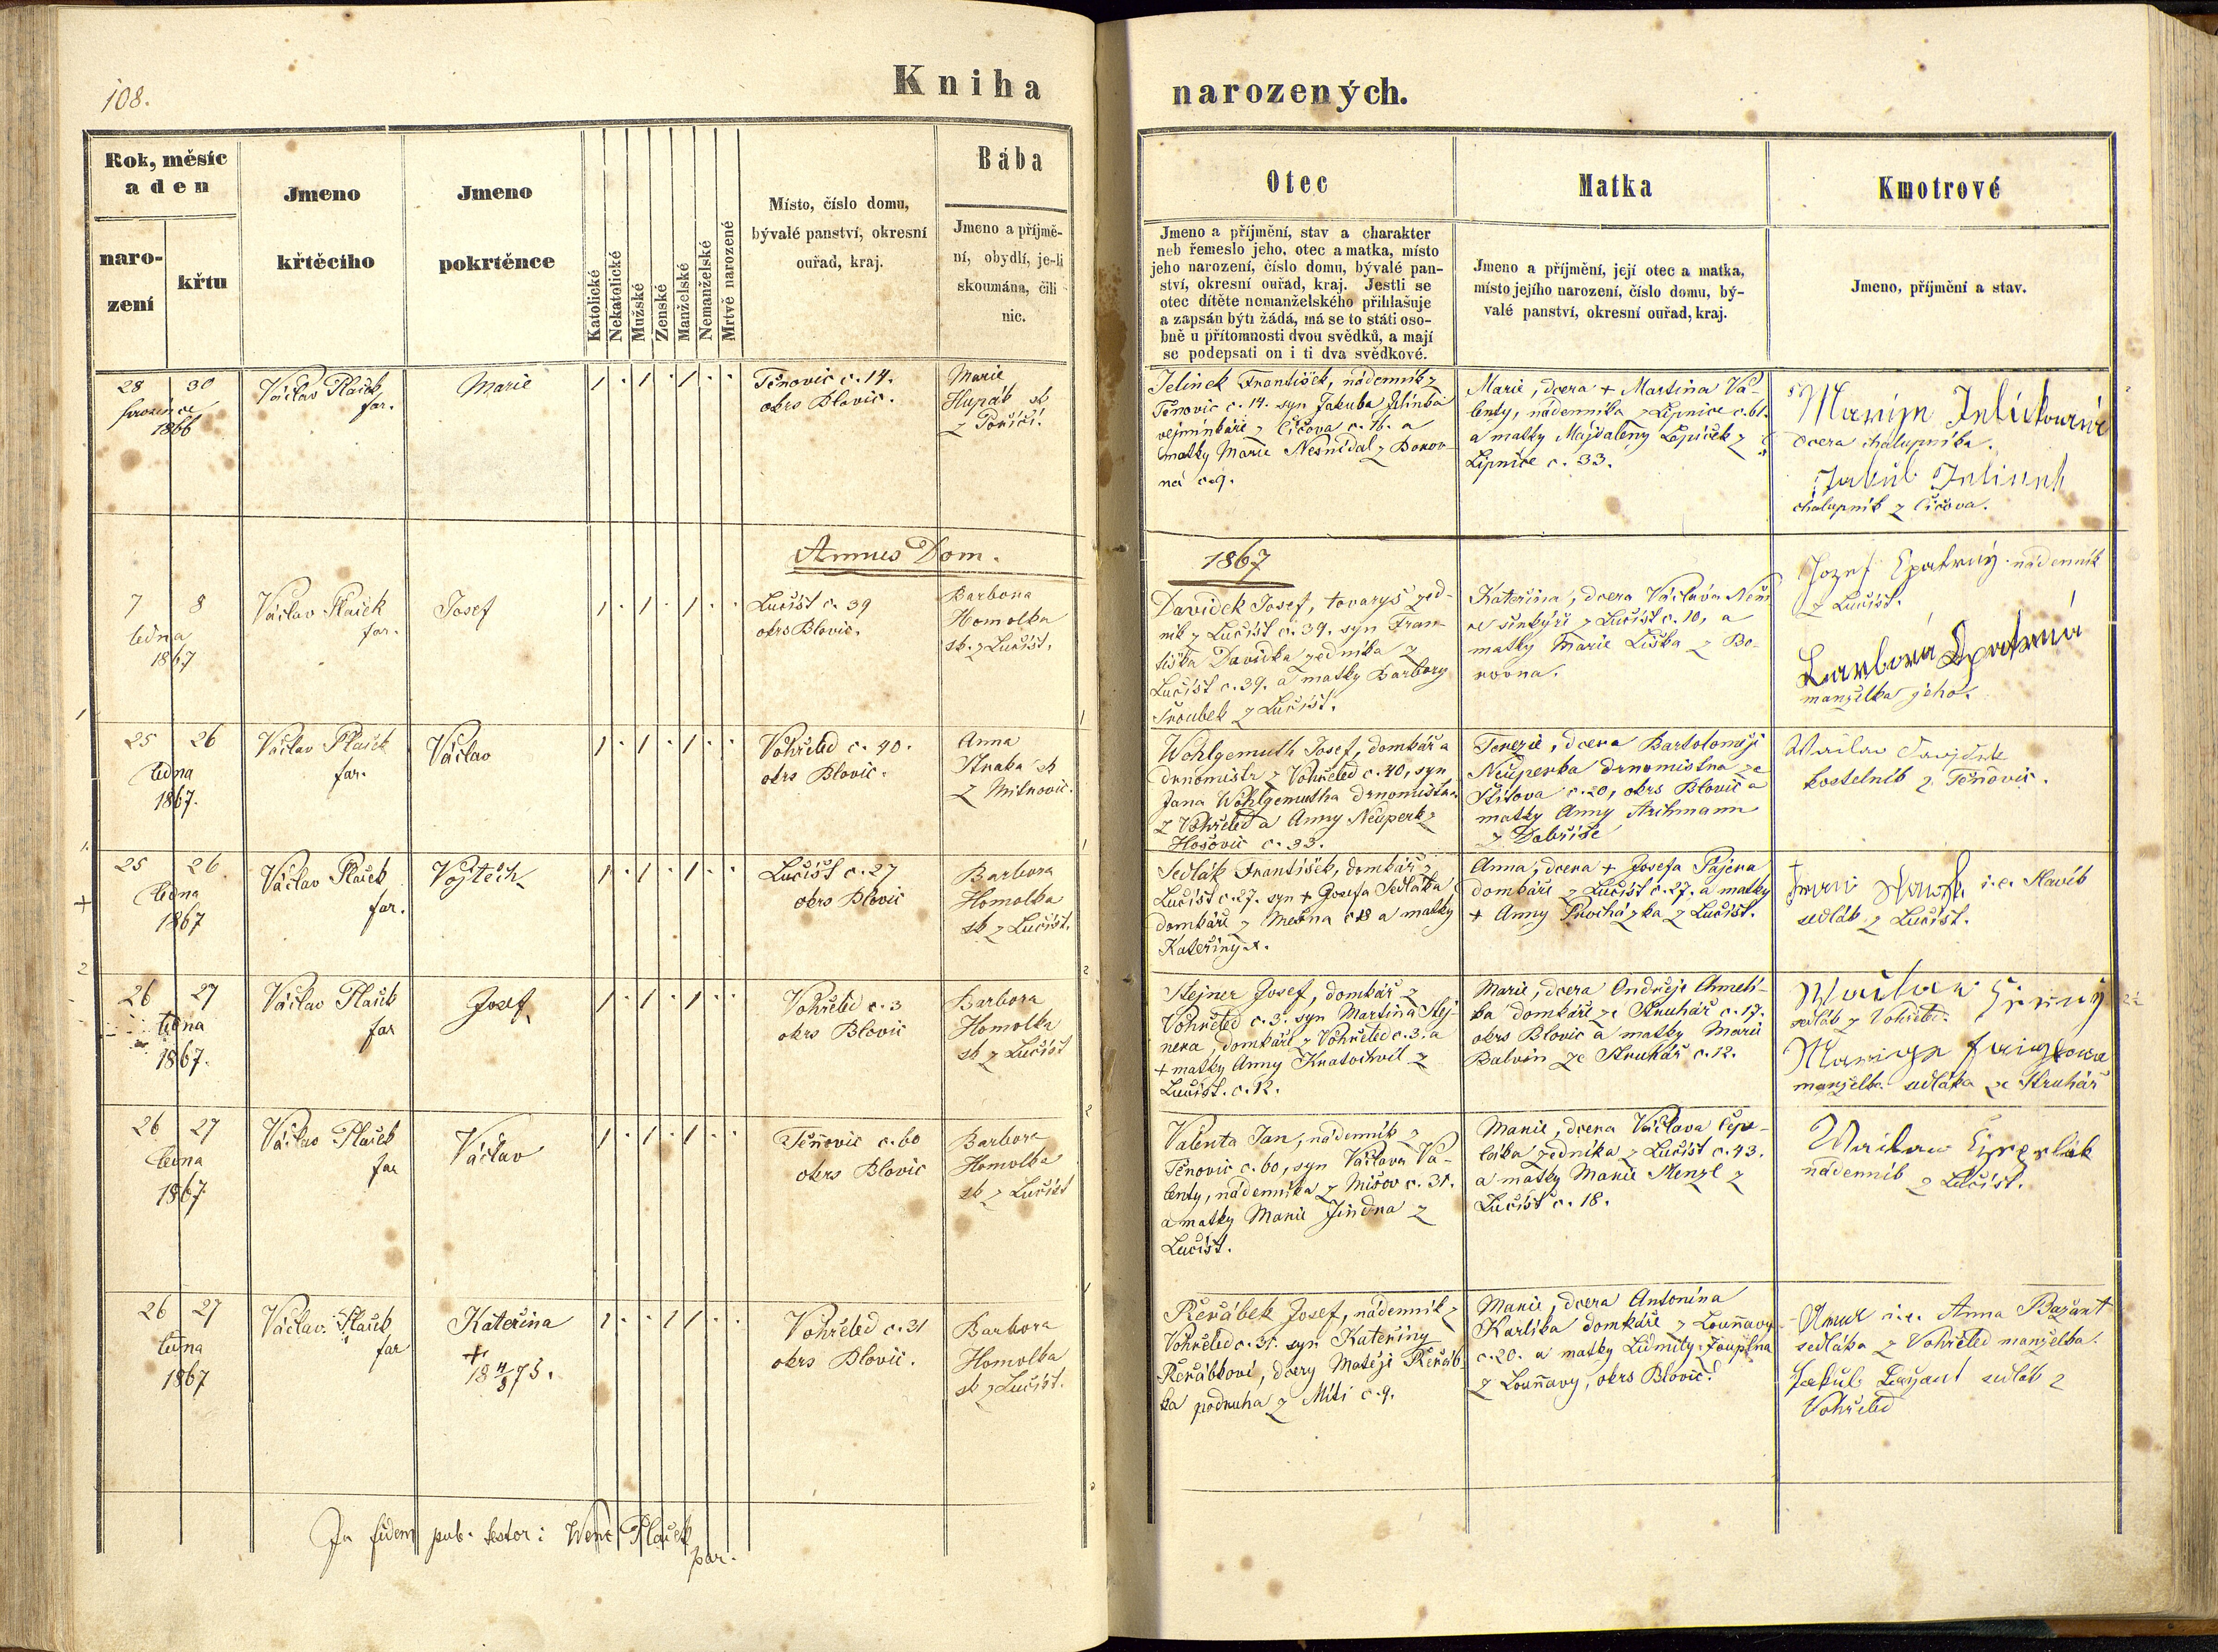 108.
Kniha
narozených.
Rok, měsíc
a den
naro-
zení
křtu
Jmeno
křtěcího
Jmeno
pokrtěnce
Katolické
Nekatolické
Mužské
Zenské
Manželské
Nemanželské
Mrtvě narozené
Místo, číslo domu,
bývalé panství, okresní
ouřad, kraj.
Bába
Jmeno a příjmě-
ní, obydlí, je-li
skoumána, čili
nic.
Otec
Jmeno a příjmění, stav a charakter
neb řemeslo jeho, otec a matka, místo
jeho narození, číslo domu, bývalé pan-
ství, okresní ouřad, kraj. Jestli se
otec dítěte nemanželského přihlašuje
a zapsán býti žádá, má se to státi oso-
bně u přítomnosti dvou svědků, a mají
se podepsati on i ti dva svědkové.
Matka
Jmeno a příjmění, její otec a matka,
místo jejího narození, číslo domu, bý-
valé panství, okresní ouřad, kraj.
Kmotrové
Jmeno, příjmění a stav.
28 30
prosince
1866
Václav Plaček
far.
Marie
1 . 1 . 1 . .
Těnovic c. 14.
okrs Blovic.
Marie
Hupák sk
z Poříčí.
Jelinek František, nádenník z
Těnovic c. 14. syn Jakuba Jelínka
vejminkáře z Číčova c. 16. a
matky Marie Nesnídal z Borov-
ná c. 9.
Marie, dcera + Martina Va-
lenty, nádenníka z Lipnice c. 61.
a matky Majdaleny Lepíček z
Lipnice c. 33.
dcera chalupníka.
Jakub Jelinek
chalupník z Číčova.
Annus Dom.
1867
7 8
ledna
1867
Václav Plaček
far.
Josef
1 . 1 . 1 . .
Lučišť c. 39
okrs Blovic.
Barbora
Homolka
sk. z Lučišť.
Davídek Josef, tovaryš zed-
ník z Lučišť c. 39. syn Fran-
tiška Davídka zedníka z
Lučišť c. 39. a matky Barbory
Šroubek z Lučišť.
Kateřina, dcera Václava
z Lučišť c. 10, a
matky Marie Liška z Bo-
rovna.
Jozef Spatný nádenník
z Lučišť.
Barbora Spatná
manželka jeho.
25 26
ledna
1867.
Václav Plaček
far.
Václav
1 . 1 . 1 . .
Vohřeled c. 40.
okrs Blovic.
Anna
Straka sk
z Mitrovic.
Wohlgemuth Josef, domkář a
drnomistr z Vohřeled c. 40, syn
Jana Wohlgemutha drnomistra
z Vohřeled a Anny Neuperk z
Hošovic c. 33.
Terezie, dcera Bartoloměje
Neuperka drnomistra ze
Štítova c. 20, okrs Blovic a
matky Anny
z Dobříše
kostelník z Těňovic.
25 26
ledna
1867
Václav Plaček
far.
Vojtěch
1 . 1 . 1 . .
Lučišť c. 27
okrs Blovic
Barbora
Homolka
sk z Lučišť.
Sedlák František, domkář z
Lučišť c. 27. syn + Josefa Sedláka
domkáře z Mešna c 18 a matky
Kateřiny
Anna, dcera + Josefa Pajera
domkáře z Lučišť c. 27. a matky
+ Anny Procházka z Lučišť.
i. e. Slavík
sedlák z Lučišť.
26 27
ledna
1867.
Václav Plaček
far
Josef
1 . 1 . 1 . .
Vohřeled c. 3
okrs Blovic
Barbora
Homolka
sk z Lučišť
Stejner Josef, domkář z
Vohřeled c. 3. syn Martina Stej-
nera, domkáře z Vohřeled c. 3. a
+ matky Anny Kratochvil z
Lučišť. c. 12.
Marie, dcera Ondřeje Chmelí-
ka domkáře ze Struhář c. 17.
okrs Blovic a matky Marie
Balvín ze Struhář c. 12.
sedlák z Vohřeled.
manželka sedláka ze Struhář
26 27
ledna
1867
Václav Plaček
far
Václav
1 . 1 . 1 . .
Těňovic c. 60
okrs Blovic
Barbora
Homolka
sk z Lučišť
Valenta Jan, nádenník z
Těnovic c. 60, syn Václava Va-
lenty, nádenníka z Mišov c. 31.
a matky Marie Jindra z
Lučišť.
Marie, dcera Václava Čepe-
láka zedníka z Lučišť c. 43.
a matky Marie Menzl z
Lučišť c. 18.
nádenník z Lučišť.
26 27
ledna
1867
Václav Plaček
far
Kateřina
+
18 4/8 75.
1 . . 1 1 . .
Vohřeled c. 31
okrs Blovic.
Barbora
Homolka
sk z Lučišť.
Řeřábek Josef, nádenník z
Vohřeled c. 31. syn Kateřiny
Řeřábkové, dcery Matěje Řeřáb-
ka podruha z Mítí c. 9.
Marie, dcera Antonína
Karlíka domkáře z Louňavy
c. 20. a matky Lidmily ZoupLna
z Louňavy, okrs Blovic.
i. e. Anna Bažant
sedláka z Vohřeled manželka.
Jakub Bažant sedlák z
Vohřeled
In fidem pub. testor: Wenc Plaček
par.